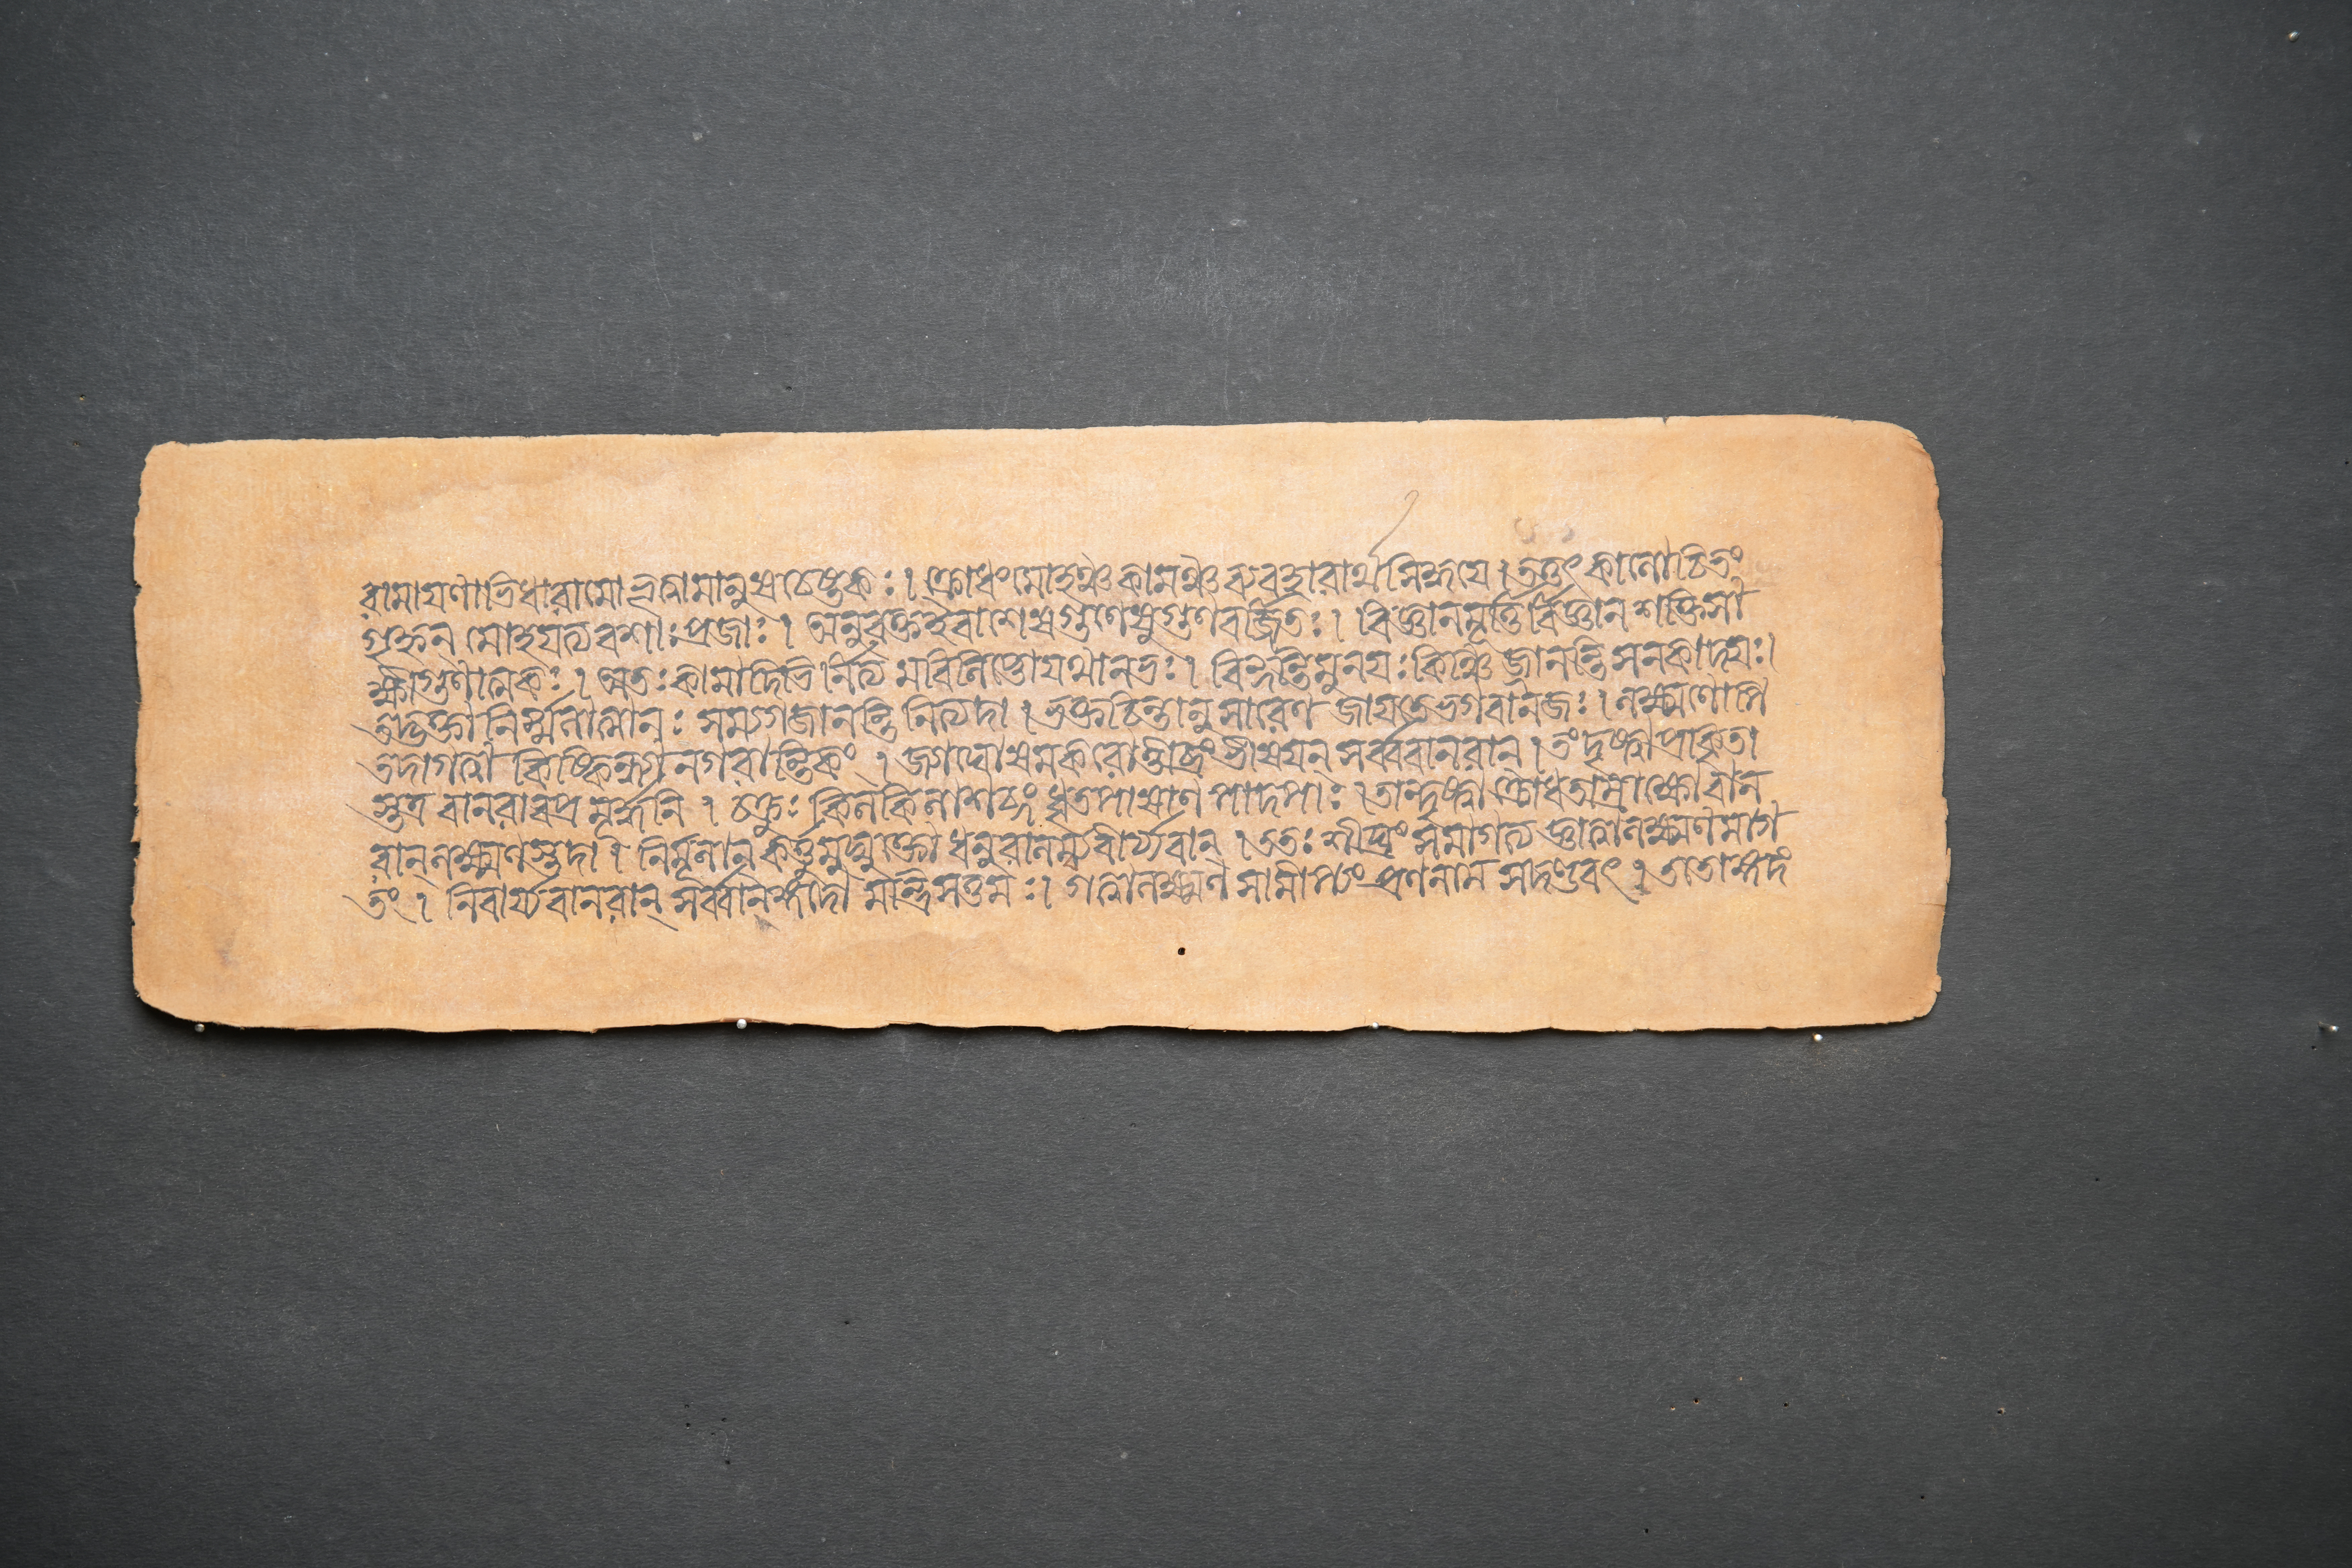 রামাযণাভিধাংরামো ভূত্বামানুষচেষ্টকঃ। ক্রোধংমোহঞ্চকামঞ্চব্যবহারার্থসিদ্ধযে। তত্তৎকালোচিতং
গৃহ্নন্ মোহযত্যবশাঃপ্রজাঃ। অনুরক্তইবাশেষগুণেষুগুণবর্জ্জিতঃ। বিজ্ঞানমূর্ত্তির্বিজ্ঞানশক্তিসা
ক্ষ্যাগুণাত্মকঃ। অতঃকামাদিভির্নিত্যমবিলিপ্তোযথানভঃ। বিন্দন্তিমুনযঃকেচিজ্জানন্তিসনকাদযঃ।
তদ্ভক্তানির্ম্মলাত্মানঃ সম্যগ্জানন্তিনিত্যদা। ভক্তচিত্তানুসারেণ জাযতেভগবানজঃ। লক্ষ্মণোপি
তদাগত্বা কিষ্কিন্ধ্যানগরান্তিকং। জ্যাঘোষমকরোত্তীব্রংভীষযন্ সর্ব্ববানরান্। তংদৃষ্ট্বাপ্রাকৃতা
স্তত্র বানরাবপ্রমূর্দ্ধনি। চক্রুঃ কিলকিলাশব্দং ধৃতপাষাণপাদপাঃ। তান্দৃষ্ট্বাক্রোধতাম্রাক্ষোবান
রান্লক্ষ্মণস্তদা। নির্মূলান্ কর্ত্তুমুদ্যুক্তো ধনুরানম্যবীর্য্যবান্। ততঃ শীঘ্রং সমাগত্য জ্ঞাত্বালক্ষ্মণমাগ
তং। নিবার্য্যবানরান্ সর্ব্বানঙ্গদো মন্ত্রিসত্তমঃ। গত্বালক্ষ্মণসামীপ্যং প্রণনাম সদণ্ডবৎ। ততোঙ্গদং